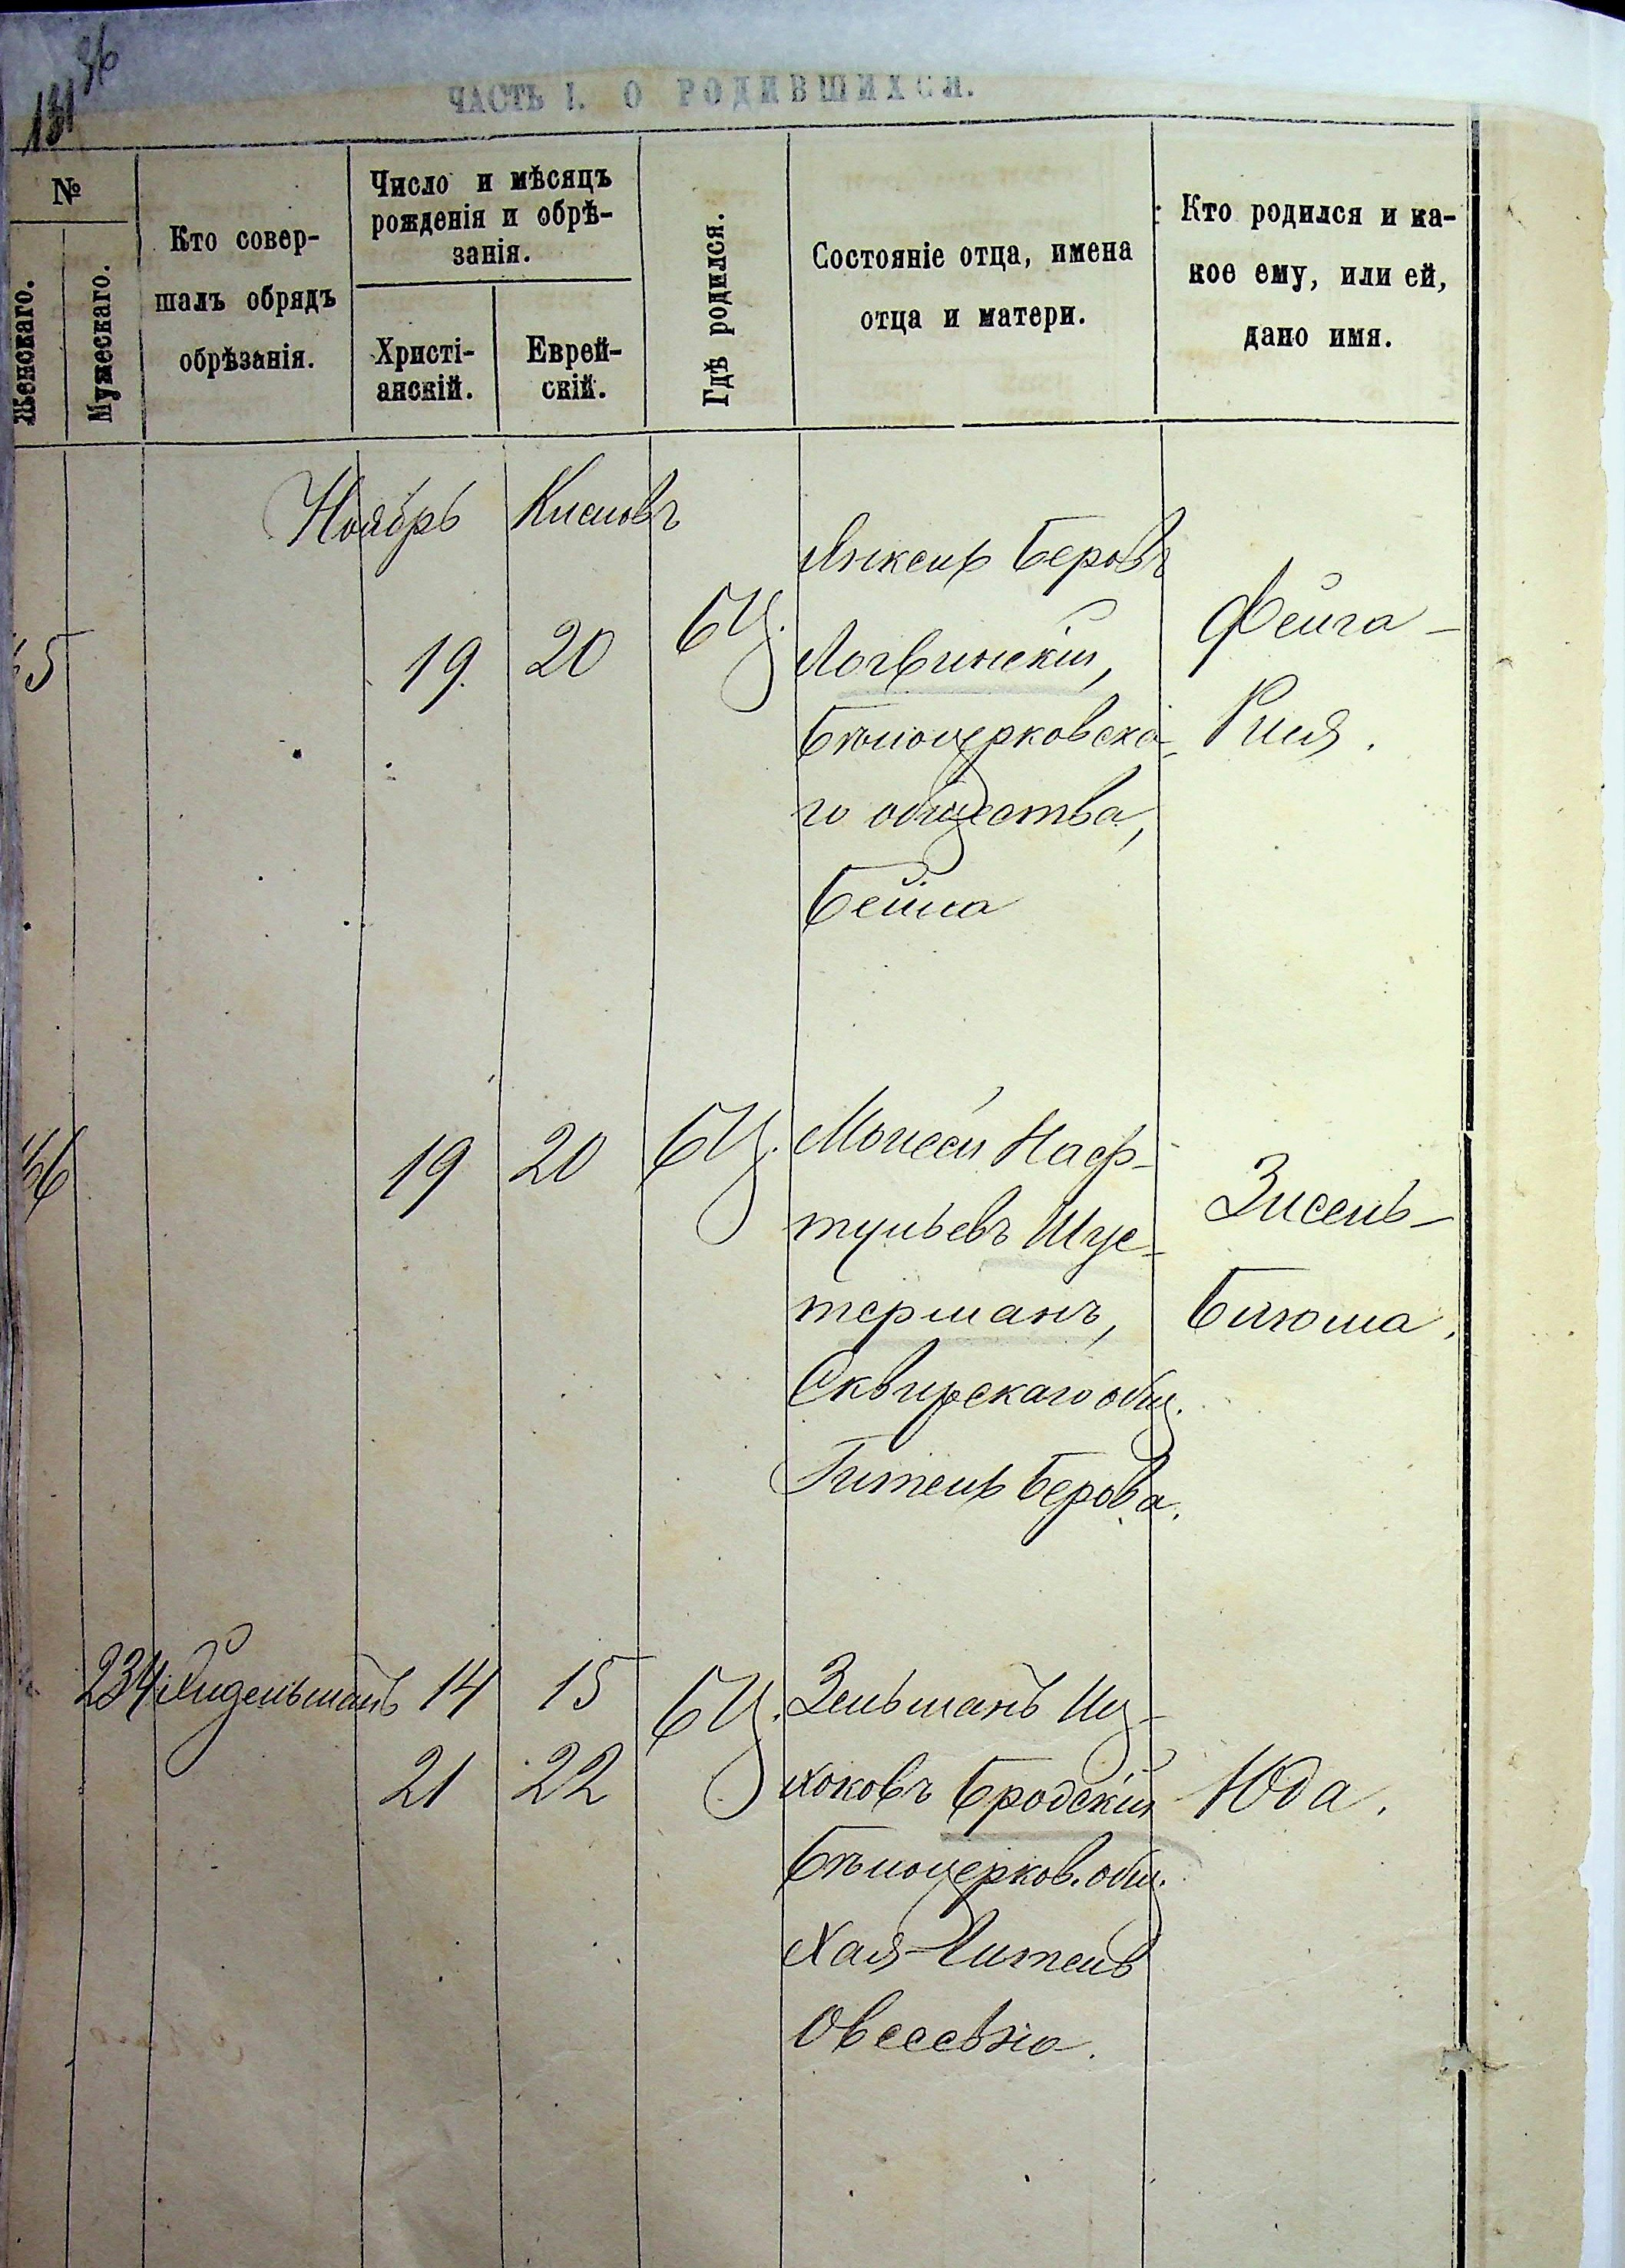 131
96
ЧАСТЬ I. О РОДИВШИХСЯ.
№
Женскаго.
Мужескаго.
Кто совер-
шалъ обрядъ
обрѣзанія.
Число и мѣсяцъ
рожденія и обрѣ-
занія.
Христі-
анскій.
Еврей-
скій.
Гдѣ родился.
Состояніе отца, имена
отца и матери.
Кто родился и ка-
кое ему, или ей,
дано имя.
Ноябрь Кислевъ
5 19. 20 БЦ.
Янкель Беровъ
Логвинскій,
Бѣлоцерковска-
го общества,
Бейла
Фейга-
Рися.
66 19 20 БЦ.
Моисей Наф-
тульевъ Шус-
терманъ,
Сквирскаго общ.
Гитель Берова.
Зисель-
Блюма.
234 Айдельманъ 14 15 БЦ.
21 22
Зельманъ Иц-
хоковъ Бродскій
Бѣлоцерков. общ.
Хая-Гитель
Овсеевна.
Юда.